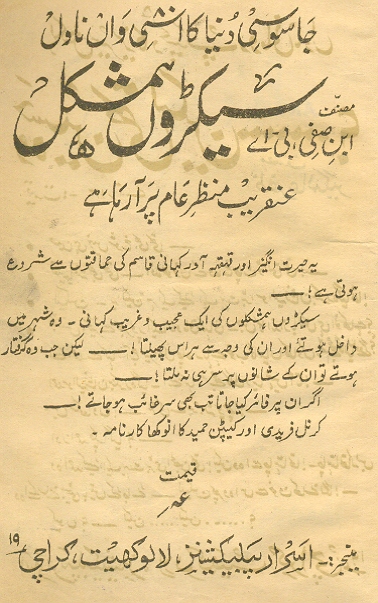 جاسوسی دنیا کا انشی واں ناول
سیکڑوں ہمشکل
مصنف
ابن صفی، بی-اے
عنقریب منظرِ عام پر آ رہا ہے
یہ حیرت انگیز اور قہقہہ آور کہانی قاسم کی حماقتوں سے شروع
ہوتی ہے! —
سیکڑوں ہمشکلوں کی ایک عجیب و غریب کہانی - وہ شہر میں
داخل ہوتے اور ان کی وجہ سے ہراس پھیلتا! — لیکن جب وہ گرفتار
ہوتے تو ان کے شانوں پر سر ہی نہ ملتا! —
اگر ان پر فائر کیا جاتا تب بھی سر غائب ہو جاتے! —
کرنل فریدی اور کیپٹن حمید کا انوکھا کارنامہ -
قیمت
منیجر:- اسرار پبلیکیشنز، لالوکھیت، کراچی ۱۹